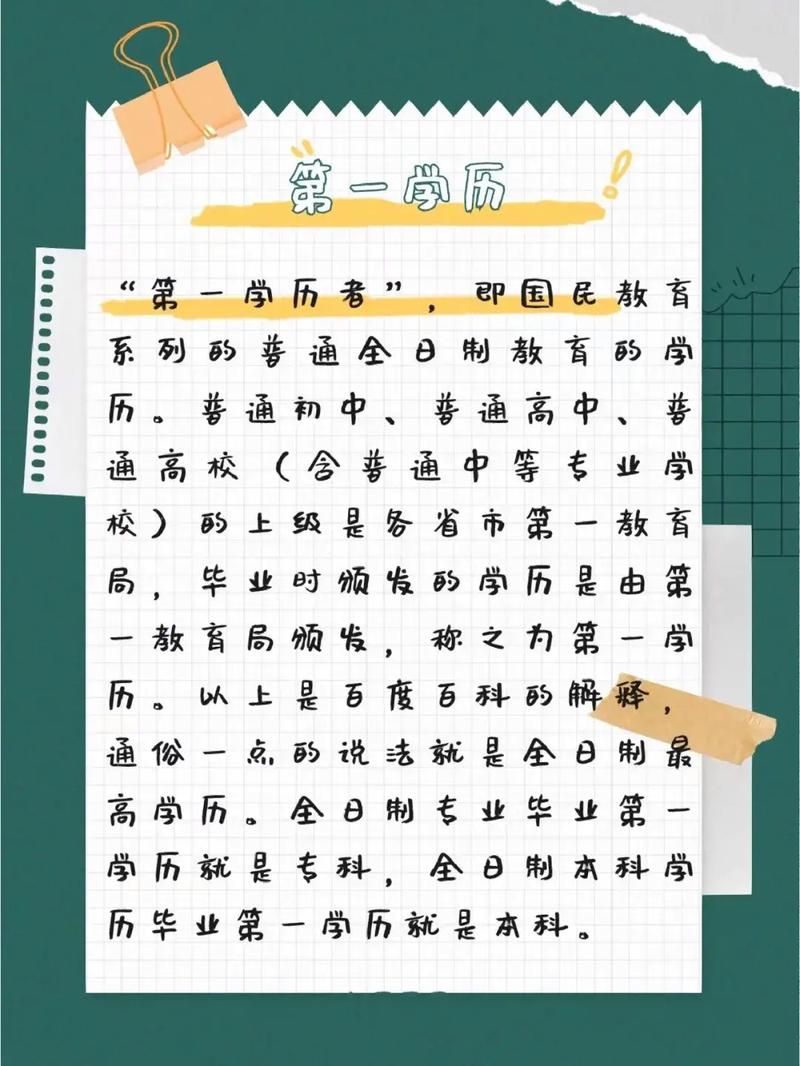 第一学历
“第一学历者”，即国民教育
系列的普通全日制教育的学
历。普通初中、普通高中、普
通高校（含普通中等专业学
校）的上级是各省市第一教育
局，毕业时颁发的学历是由第
一教育局颁发，称之为第一学
历。以上是百度百科的解释，
通俗一点的说法就是全日制最
高学历。全日制专业毕业第一
学历就是专科，全日制本科学
历毕业第一学历就是本科。